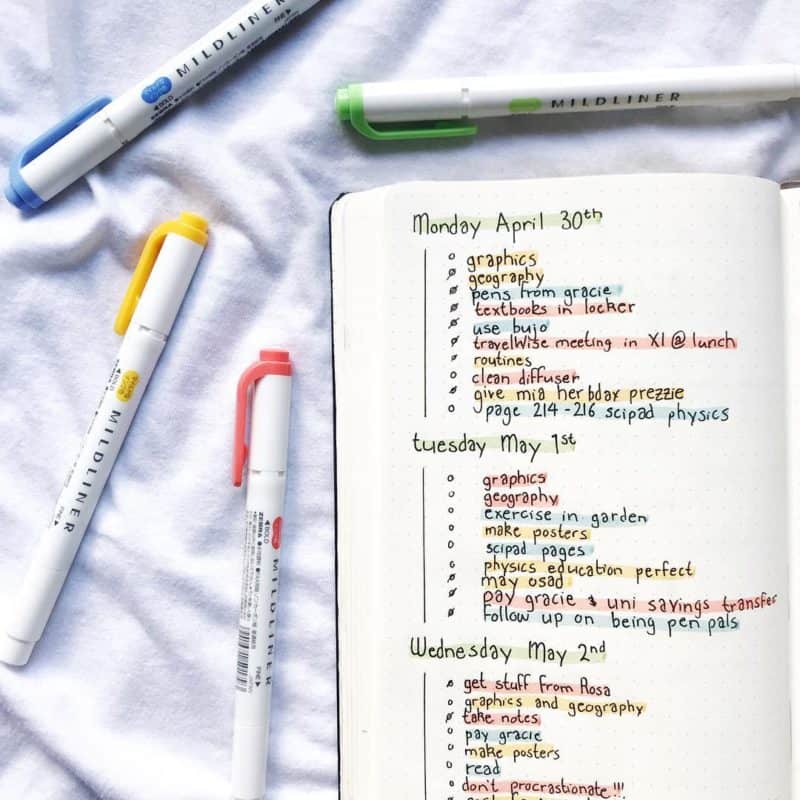 MILDLINER
BOLD
FINE
MILDLINER
Monday April 30th
graphics
geography
pens from gracie
textbooks in locker
use bujo
travelwise meeting in X1 @ lunch
routines
clean diffuser
give mia her bday prezzie
page 214-216 scipad physics
tuesday May 1st
graphics
geography
exercise in garden
make posters
scipad pages
physics education perfect
may osad
pay gracie & uni savings transfer
Follow up on being pen pals
Wednesday May 2nd
get stuff from Rosa
graphics and geography
take notes
pay gracie
make posters
read
don't procrastionate!!!
BOLD
MILDLINER
FINE
BOLD
ZEBRA
MILDLINER
FINE